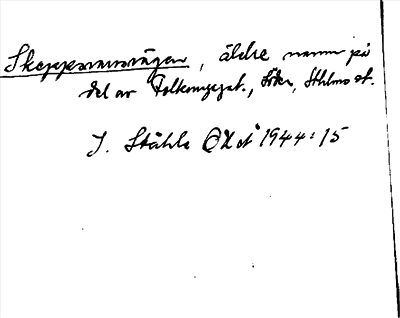 Skepparevägen, äldre namn på
del av Folkungagat., Söder, Sthlms st.
J. Ståhle 1944: 15